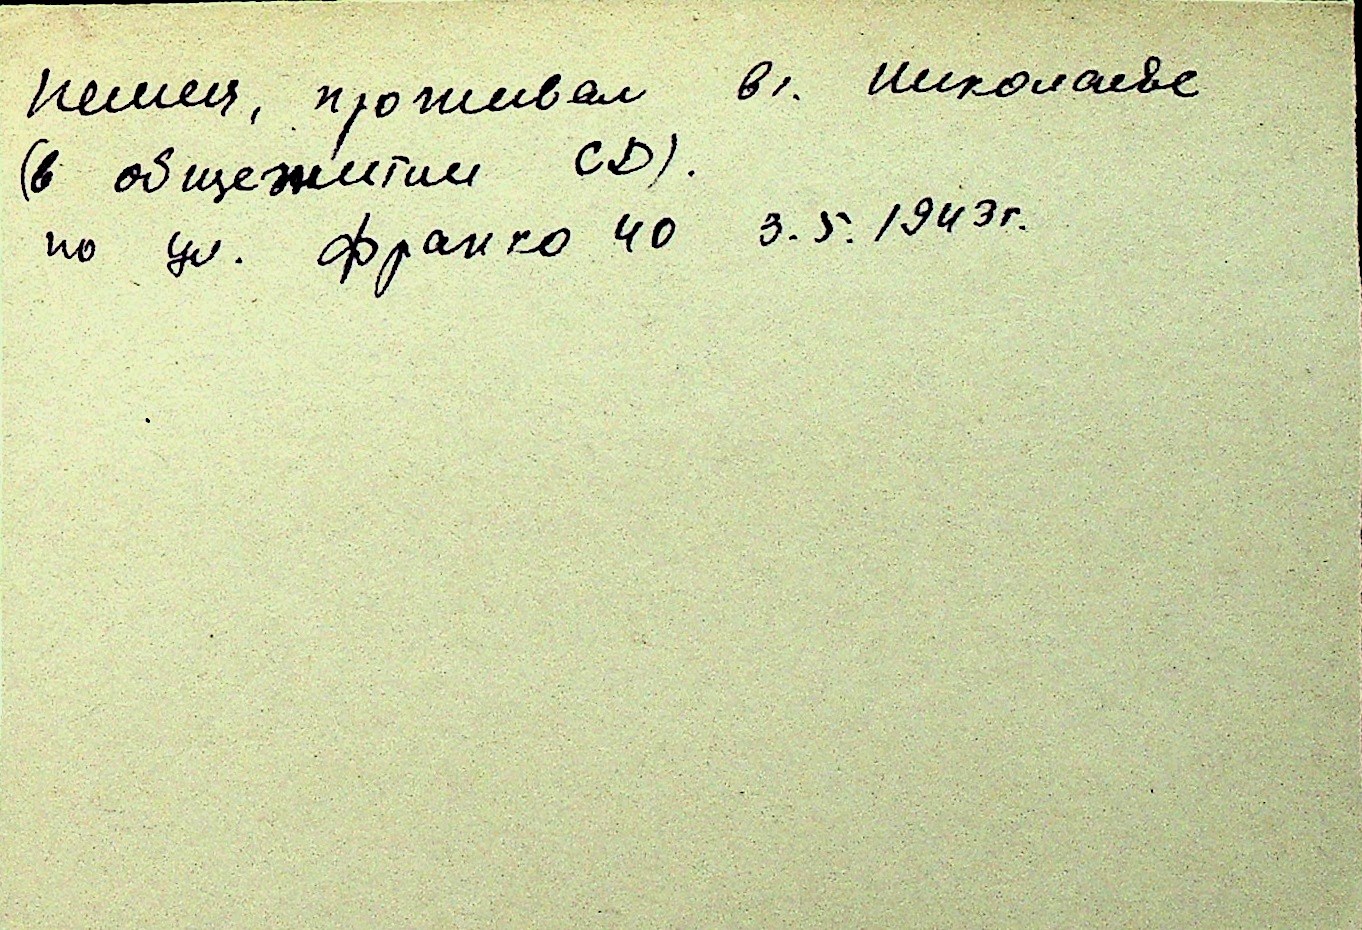 Немец, проживал в г. Николаеве
(в общежитии СД).
по ул. Франко 40 3.5.1943г.